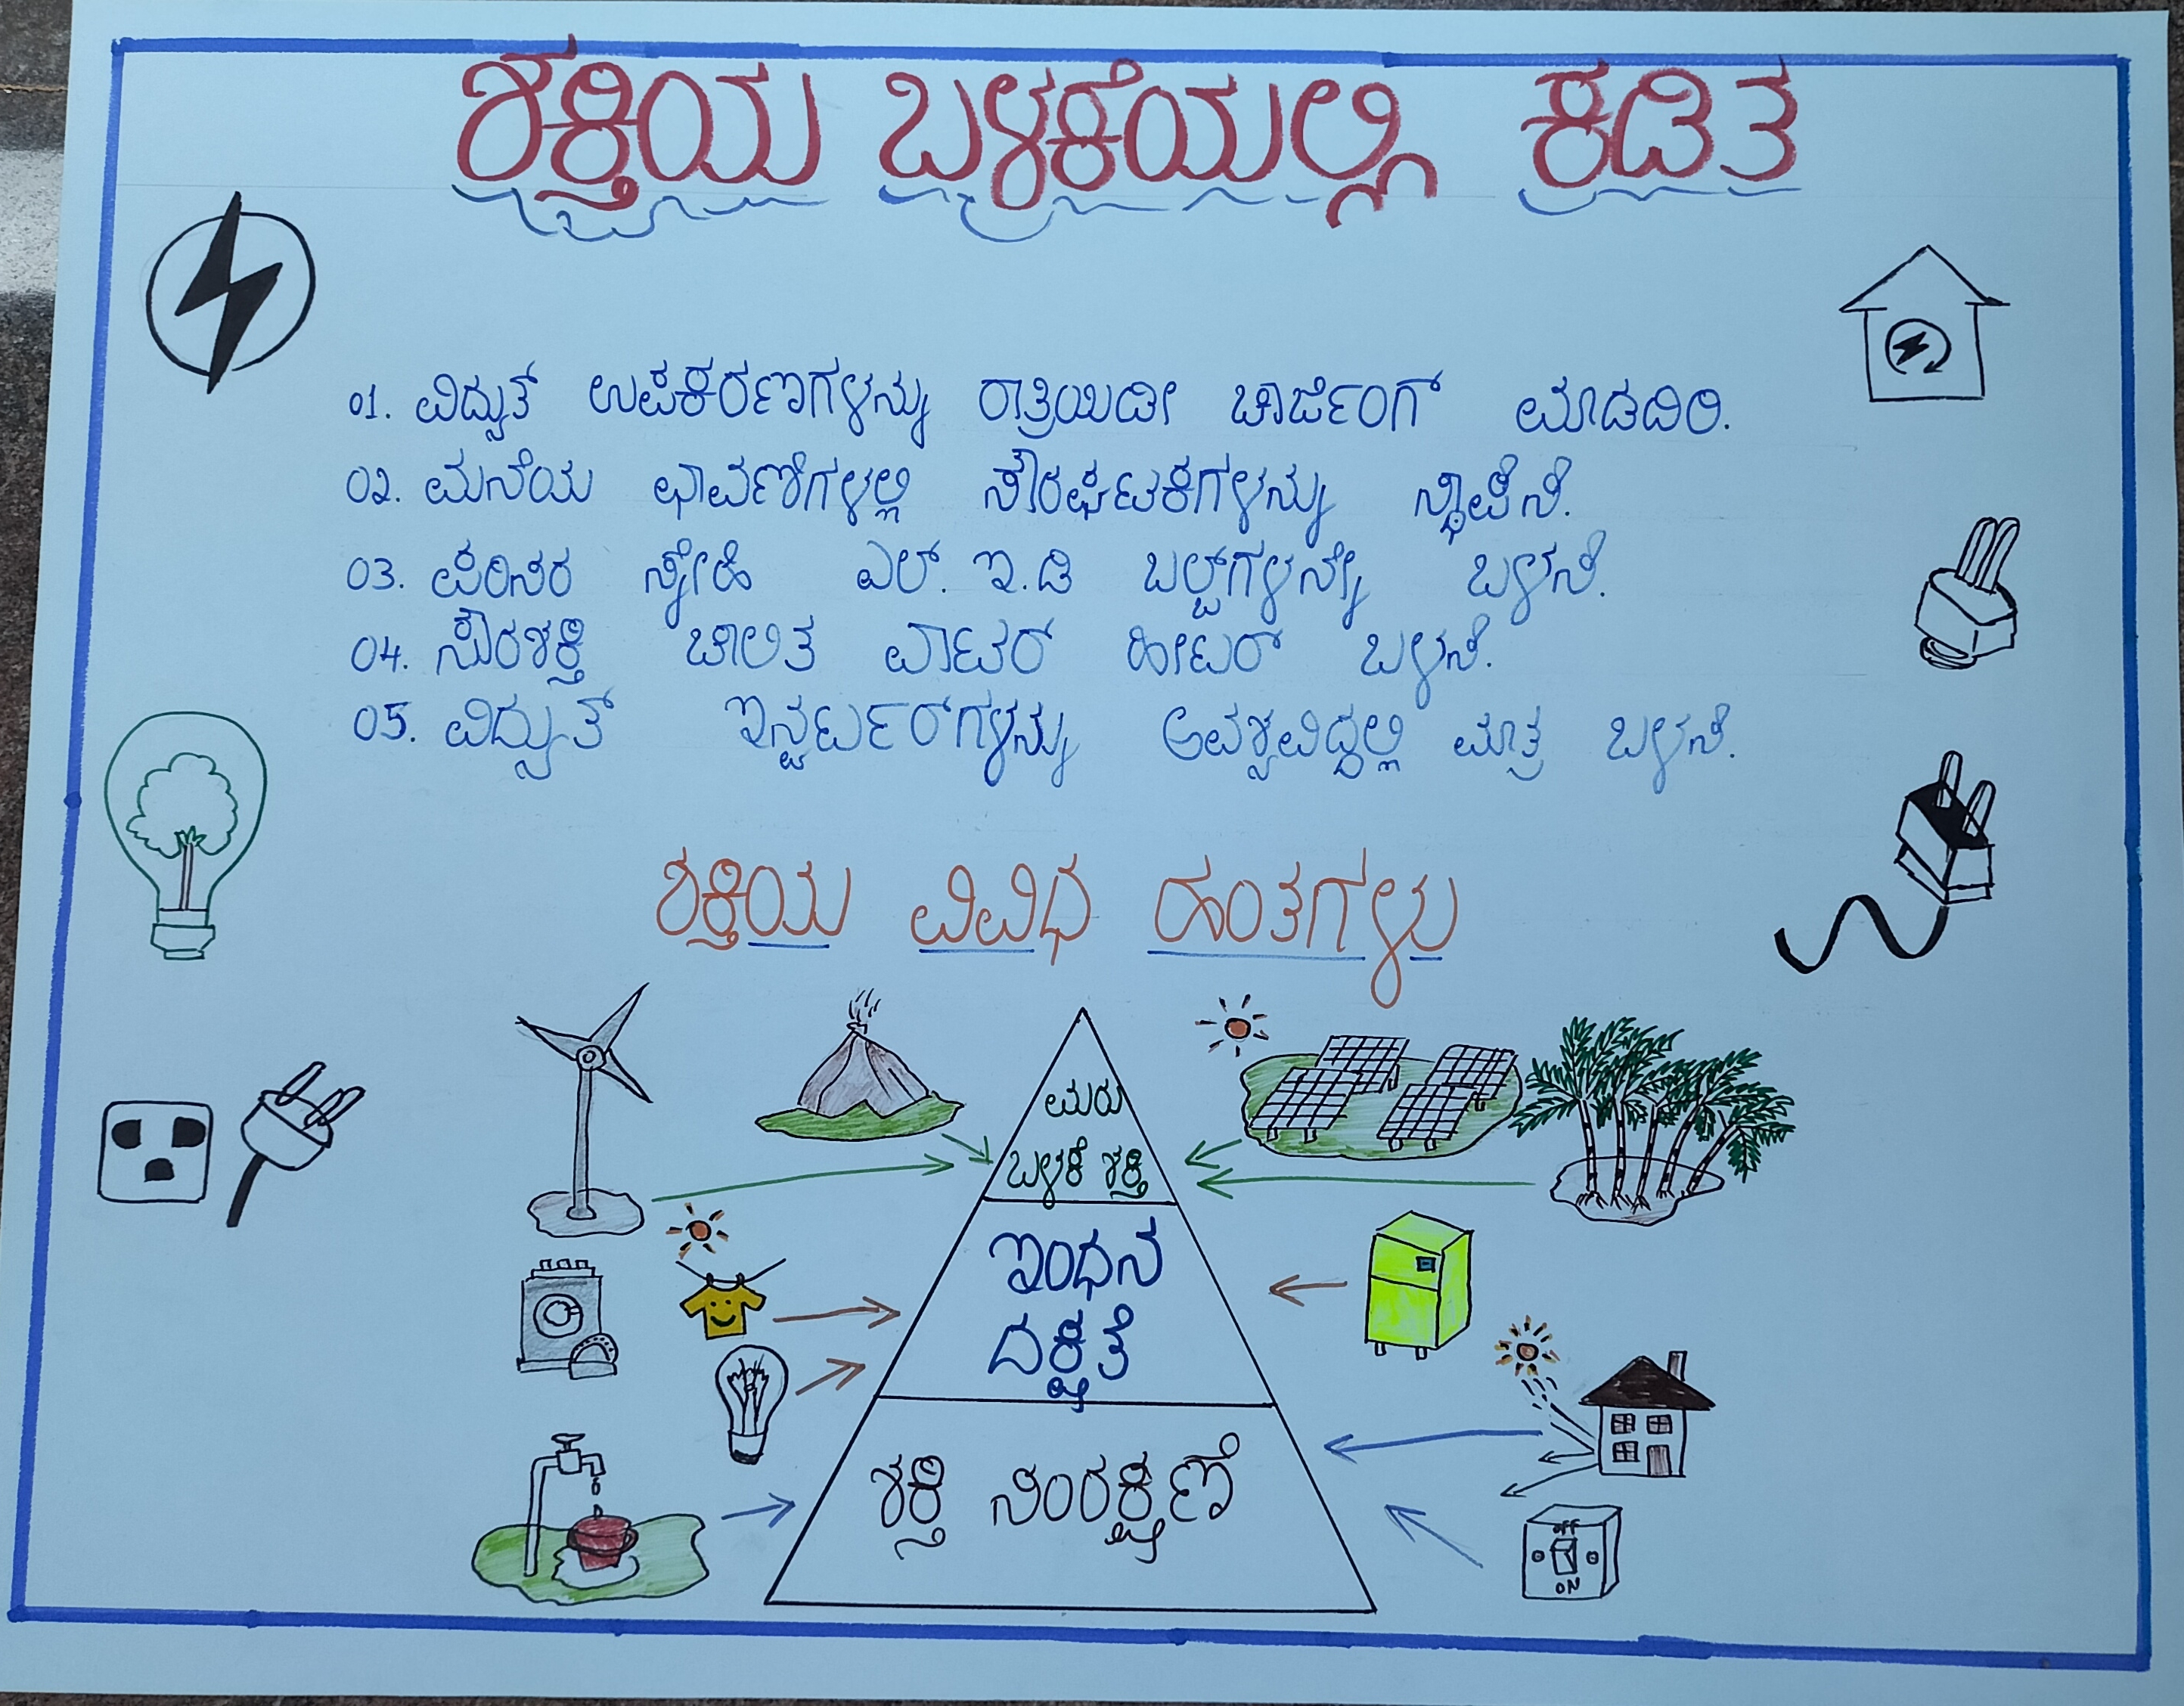 ಶಕ್ತಿಯ ಬಳಕೆಯಲ್ಲಿ ಕಡಿತ
01. ವಿದ್ಯುತ್ ಉಪಕರಣಗಳನ್ನು ರಾತ್ರಿಯಿಡೀ ಚಾರ್ಜಿಂಗ್ ಮಾಡದಿರಿ.
02. ಮನೆಯ ಛಾವಣಿಗಳಲ್ಲಿ ಸೌರಘಟಕಗಳನ್ನು ಸ್ಥಾಪಿಸಿ.
03. ಪರಿಸರ ಸ್ನೇಹಿ ಎಲ್.ಇ.ಡಿ ಬಲ್ಬ್‌ಗಳನ್ನೇ ಬಳಸಿ.
04. ಸೌರಶಕ್ತಿ ಚಾಲಿತ ವಾಟರ್ ಹೀಟರ್ ಬಳಸಿ.
05. ವಿದ್ಯುತ್ ಇನ್ವರ್ಟರ್‌ಗಳನ್ನು ಅವಶ್ಯವಿದ್ದಲ್ಲಿ ಮಾತ್ರ ಬಳಸಿ.
ಶಕ್ತಿಯ ವಿವಿಧ ಹಂತಗಳು
ಮರು
ಬಳಕೆ ಶಕ್ತಿ
ಇಂಧನ
ದಕ್ಷತೆ
ಶಕ್ತಿ ಸಂರಕ್ಷಣೆ
OFF
ON